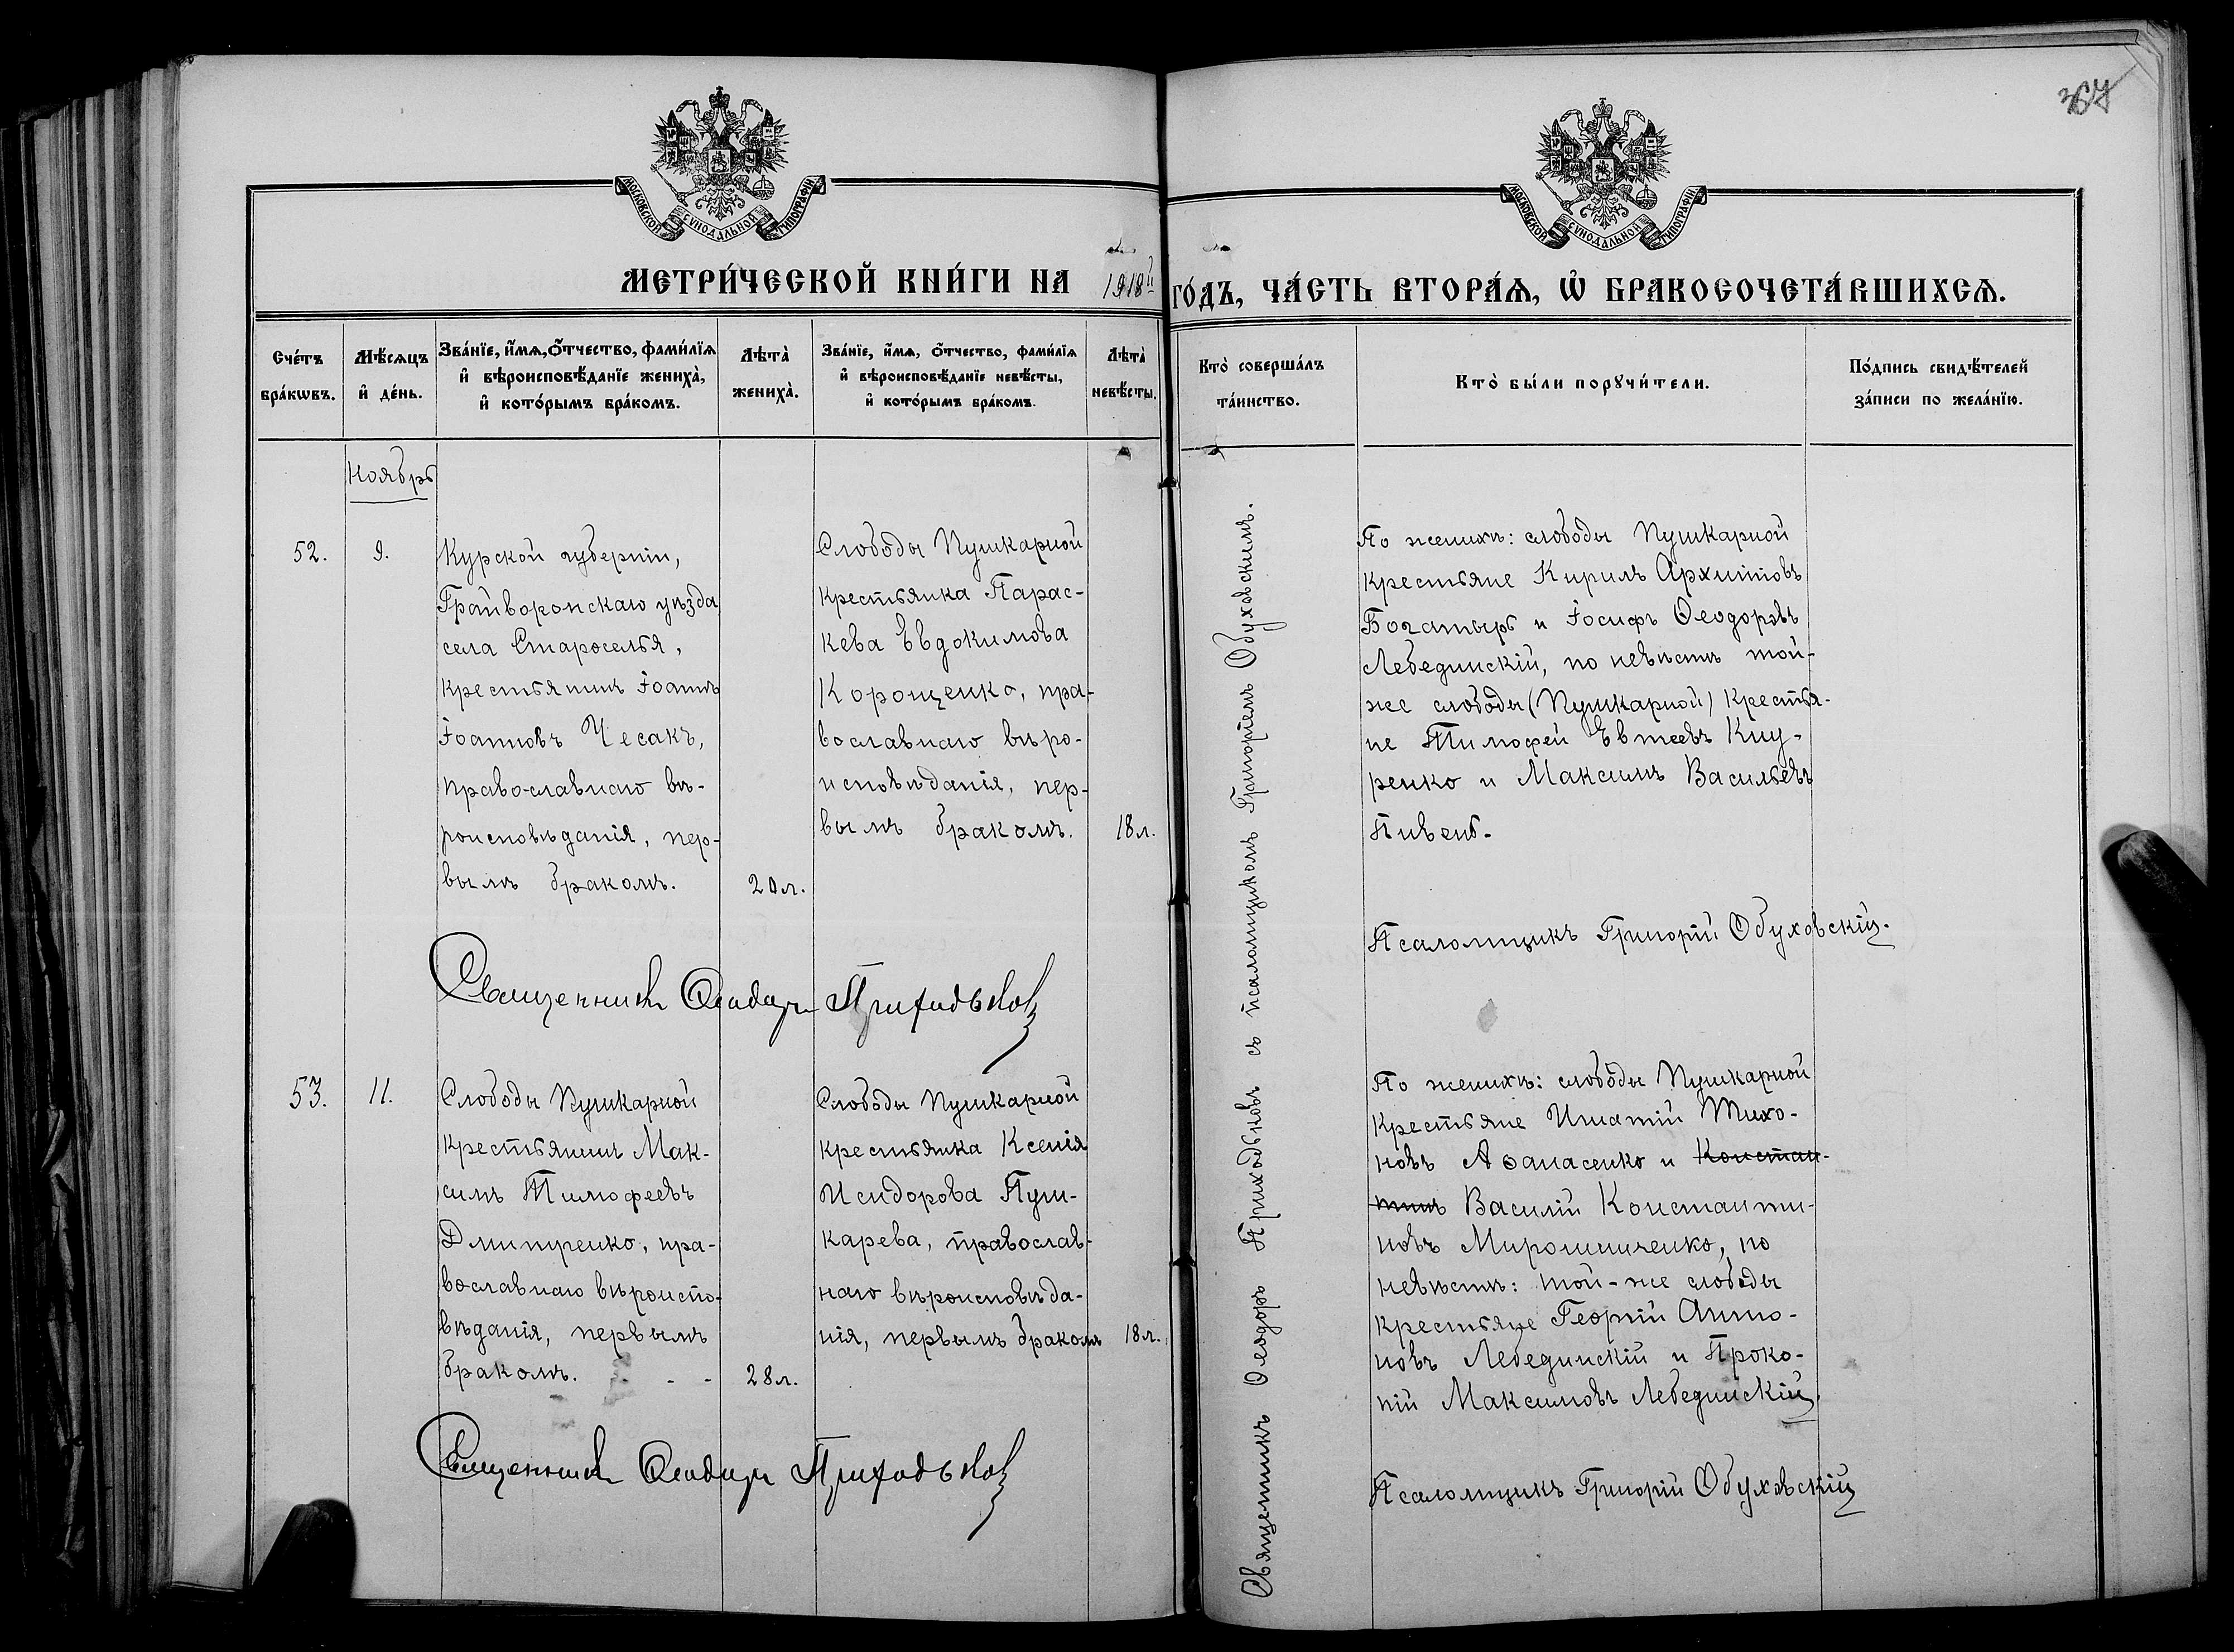 367
МОСКОВСКОЙ СѴНОДАЛЬНОЙ ТИПОГРАФІИ
МОСКОВСКОЙ СѴНОДАЛЬНОЙ ТИПОГРАФІИ
МЕТРИ́ЧЕСКОЙ КНИ́ГИ НА 1918й ГО́ДЪ, ЧА́СТЬ ВТОРА́Ѧ, Ѡ҆ БРАКОСОЧЕТА́ВШИХСѦ.
Сче́тъ
бра́кѡвъ.
Мѣ́сяцъ
и҆ де́нь.
Зва́нїе, и҆́мѧ, ѻ҆́тчество, фами́лїѧ
и҆ вѣроисповѣ́данїе жениха̀,
и҆ кото́рымъ бра́комъ.
Лѣта̀
жениха̀.
Зва́нїе, и҆́мѧ, ѻ҆́тчество, фами́лїѧ
и҆ вѣроисповѣ́данїе невѣ́сты,
и҆ кото́рымъ бра́комъ.
Лѣта̀
невѣ́сты.
Кто̀ соверша́лъ
та́инство.
Кто̀ бы́ли порꙋчи́тели.
По́дпись свидѣ́телей
за́писи по жела́нїю.
Ноябрь
52.
9.
Курской губерніи,
Грайворонскаго уѣзда
села Староселья,
крестьянинъ Іоаннъ
Іоанновъ Чесакъ,
православнаго вѣ-
роисповѣданія, пер-
вымъ бракомъ.
20 л.
Слободы Пушкарной
крестьянка Парас-
кева Евдокимова
Корощенко, пра-
вославнаго вѣро-
исповѣданія, пер-
вымъ бракомъ.
18 л.
Священникъ Ѳеодоръ Приходьковъ съ псаломщикомъ Григоріемъ Обуховскимъ.
По женихѣ: слободы Пушкарной
крестьяне Кирилъ Архиповъ
Богатырь и Іосифъ Ѳеодоровъ
Лебединскій, по невѣстѣ той-
же слободы (Пушкарной) крестья-
не Тимофей Евтеевъ Кцу-
ренко и Максимъ Васильевъ
Пивень.
Псаломщикъ Григорій Обуховскій.
Священникъ Ѳеодоръ Приходьковъ
53.
11.
Слободы Пушкарной
крестьянинъ Мак-
симъ Тимофеевъ
Дмитренко, пра-
вославнаго вѣроиспо-
вѣданія, первымъ
бракомъ. - -
28 л.
Слободы Пушкарной
крестьянка Ксенія
Исидорова Пуш-
карева, православ-
наго вѣроисповѣда-
нія, первымъ бракомъ
18 л.
По женихѣ: слободы Пушкарной
крестьяне Игнатій Тихо-
новъ Аѳанасенко и Констан-
тинъ Василій Константи-
новъ Мирошниченко, по
невѣстѣ: той-же слободы
крестьяне Георгій Анто-
новъ Лебединскій и Проко-
пій Максимовъ Лебединскій
Псаломщикъ Григорій Обуховскій
Священникъ Ѳеодоръ Приходьковъ